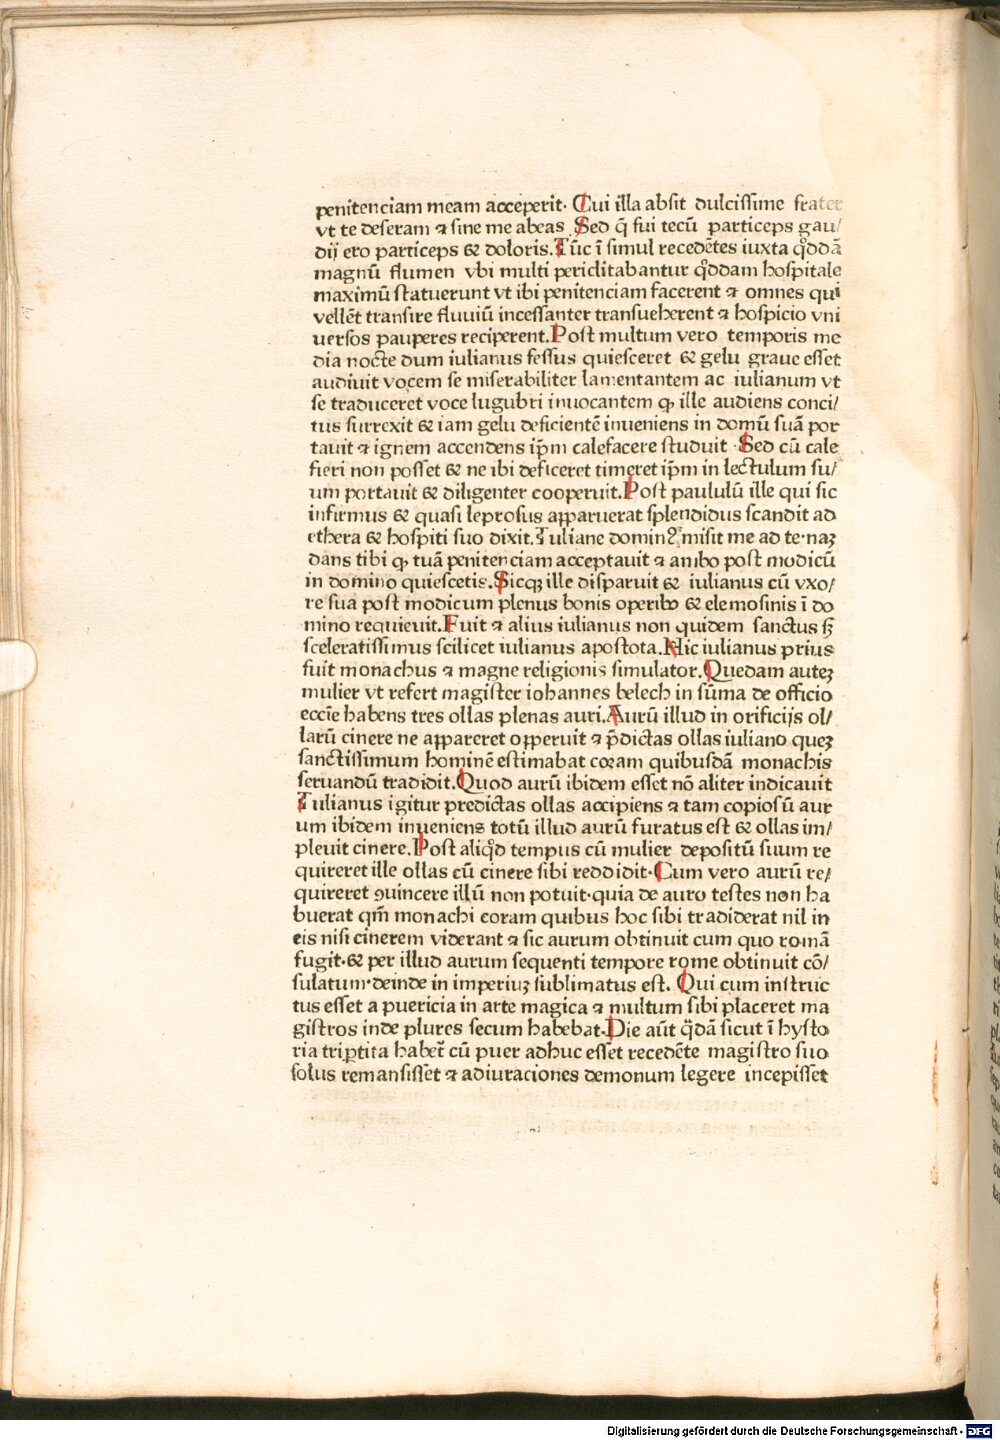 penitenciam meam acceperit· Cui illa absit dulcissime frater
vt te deseram ⁊ sine me abeas. Sed q̄ fui tecū particeps gau/
dij ero particeps & doloris. Tūc ī simul recedētes iuxta qͦddā
magnū flumen vbi multi periclitabantur qͦddam hospitale
maximū statuerunt vt ibi penitenciam facerent ⁊ omnes qui
vellēt transire fluuiū incessanter transueherent ⁊ hospicio vni
uersos pauperes reciperent. Post multum vero temporis me
dia nocte dum iulianus fessus quiesceret & gelu graue esset
audiuit vocem se miserabiliter lamentantem ac iulianum vt
se traduceret voce lugubri inuocantem ꝙ ille audiens conci/
tus surrexit & iam gelu deficientē inueniens in domū suā por
tauit ⁊ ignem accendens ip̄m calefacere studuit· Sed cū cale
fieri non posset & ne ibi deficeret timeret ip̄m in lectulum su/
um portauit & diligenter cooperuit. Post paululū ille qui sic
infirmus & quasi leprosus apparuerat splendidus scandit ad
ethera & hospiti suo dixit. Iuliane dominꝰ misit me ad te·naꝫ
dans tibi ꝙ tuā penitenciam acceptauit ⁊ ambo post modicū
in domino quiescetis. Sicqꝫ ille disparuit & iulianus cū vxo/
re sua post modicum plenus bonis operibꝰ & elemosinis ī do
mino requieuit. Fuit ⁊ alius iulianus non quidem sanctus sꝫ
sceleratissimus scilicet iulianus apostota. Hic iulianus prius
fuit monachus ⁊ magne religionis simulator. Quedam auteꝫ
mulier vt refert magister iohannes belech in sūma de officio
eccīe habens tres ollas plenas auri. Aurū illud in orificijs ol/
larū cinere ne appareret opperuit ⁊ p̄dictas ollas iuliano queꝫ
sanctissimum hominē estimabat coram quibusdā monachis
seruandū tradidit. Quod aurū ibidem esset nō aliter indicauit
Iulianus igitur predictas ollas accipiens ⁊ tam copiosū aur
um ibidem inueniens totū illud aurū furatus est & ollas im/
pleuit cinere. Post aliqͦd tempus cū mulier depositū suum re
quireret ille ollas cū cinere sibi reddidit· Cum vero aurū re/
quireret ꝯuincere illū non potuit·quia de auro testes non ha
buerat qm̄ monachi coram quibus hoc sibi tradiderat nil in
eis nisi cinerem viderant ⁊ sic aurum obtinuit cum quo romā
fugit·& per illud aurum sequenti tempore rome obtinuit cō/
sulatum·deinde in imperiuꝫ sublimatus est. Qui cum instruc
tus esset a puericia in arte magica ⁊ multum sibi placeret ma
gistros inde plures secum habebat. Die aūt qͣdā sicut ī hysto
ria trip̄tita habet̄ cū puer adhuc esset recedēte magistro suo
solus remansisset ⁊ adiuraciones demonum legere incepisset
Digitalisierung gefördert durch die Deutsche Forschungsgemeinschaft - DFG